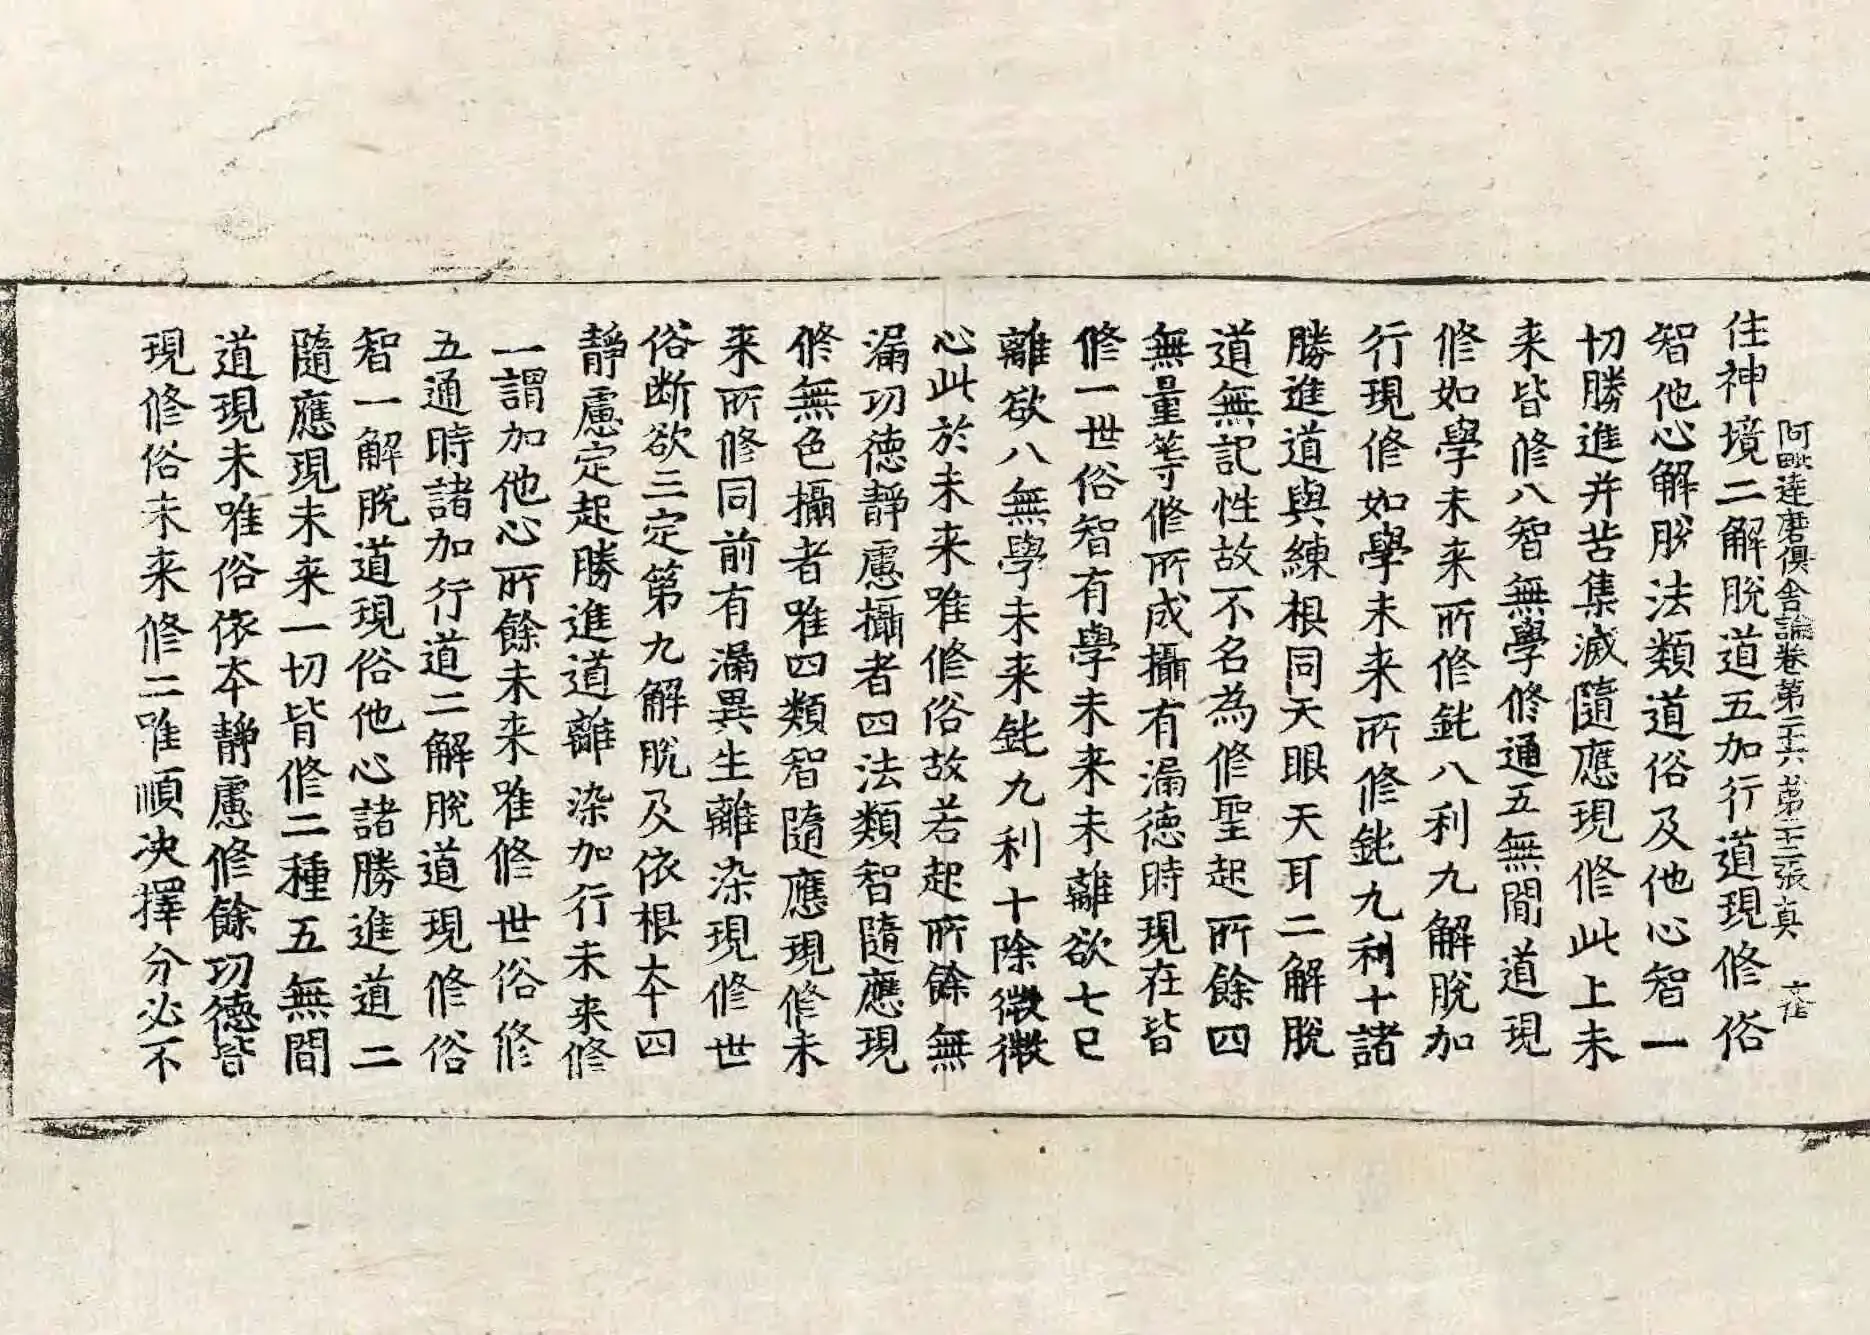 阿毗達磨俱舍論卷第二十六 第二十三張 真
住神境二解脫道五加行道現修俗
智他心解脫法類道俗及他心智一
切勝進并苦集滅隨應現修此上未
来皆修八智無學修通五無閒道現
修如學未来所修鈍八利九解脫加
行現修如學未来所修鈍九利十諸
勝進道與練根同天眼天耳二解脫
道無記性故不名為修聖起所餘四
無量等修所成攝有漏德時現在皆
修一世俗智有學未来未離欲七已
離欲八無學未来鈍九利十除微微
心此於未来唯修俗故若起所餘無
漏功德靜慮攝者四法類智隨應現
修無色攝者唯四類智隨應現修未
来所修同前有漏異生離染現修世
俗断欲三定第九解脫及依根本四
靜慮定起勝進道離染加行未来修
一謂加他心所餘未来唯修世俗修
五通時諸加行道二解脫道現修俗
智一解脫道現俗他心諸勝進道二
隨應現未来一切皆修二種五無閒
道現未唯俗依本靜慮修餘功德皆
現修俗未来修二唯順決擇分必不